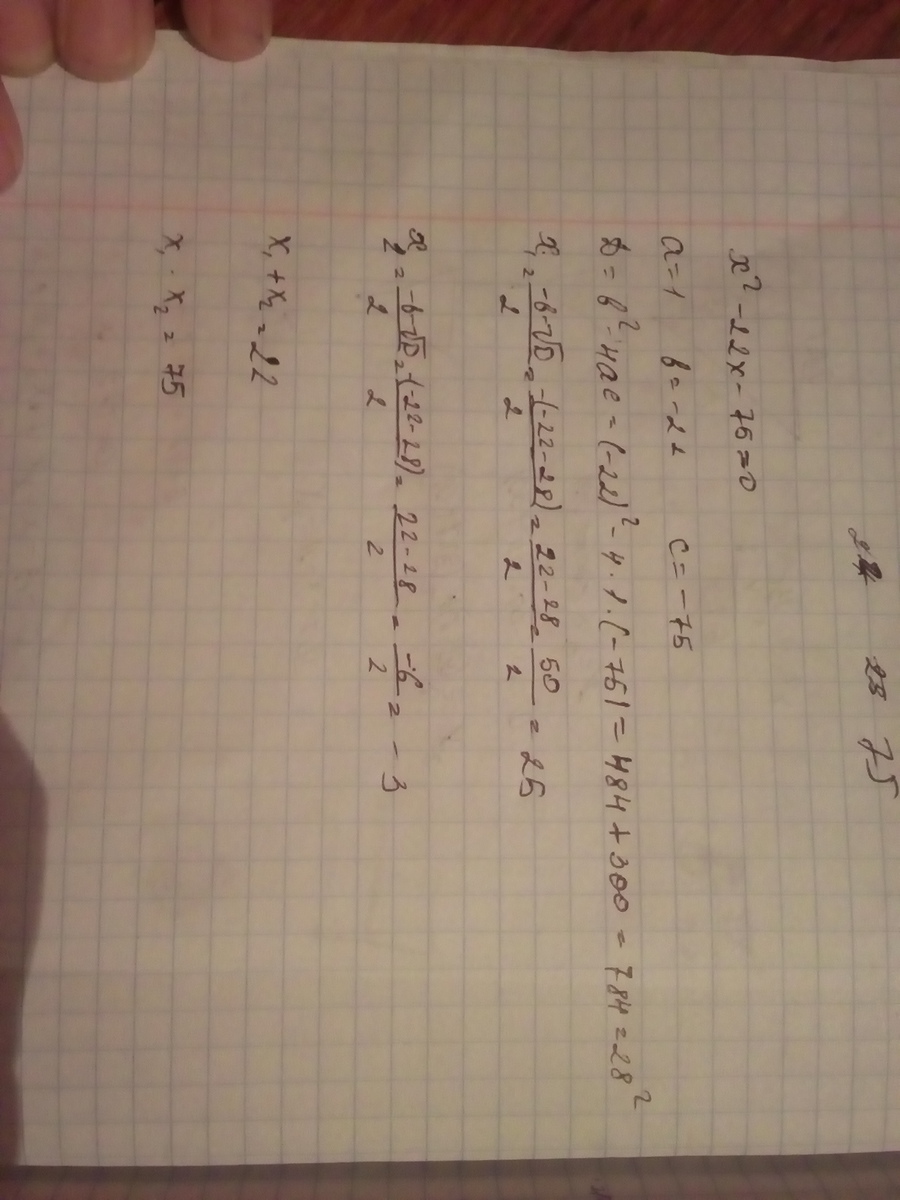 24 25 75
x² - 22x - 75 = 0
a = 1 b = -22 c = -75
D = b² - 4ac = (-22)² - 4 · 1 · (-75) = 484 + 300 = 784 = 28²
x₁ = (-b-√D)/2 = (-(-22-28))/2 = (22-28)/2 = 50/2 = 25
x₂ = (-b-√D)/2 = (-(-22-28))/2 = (22-28)/2 = -6/2 = -3
x₁ + x₂ = 22
x₁ · x₂ = 75